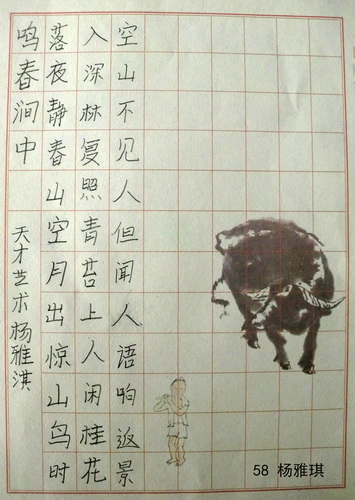 空山不见人但闻人语响返景
入深林复照青苔上人闲桂花
落夜静春山空月出惊山鸟时
鸣春涧中
天才艺术杨雅淇
58 杨雅琪